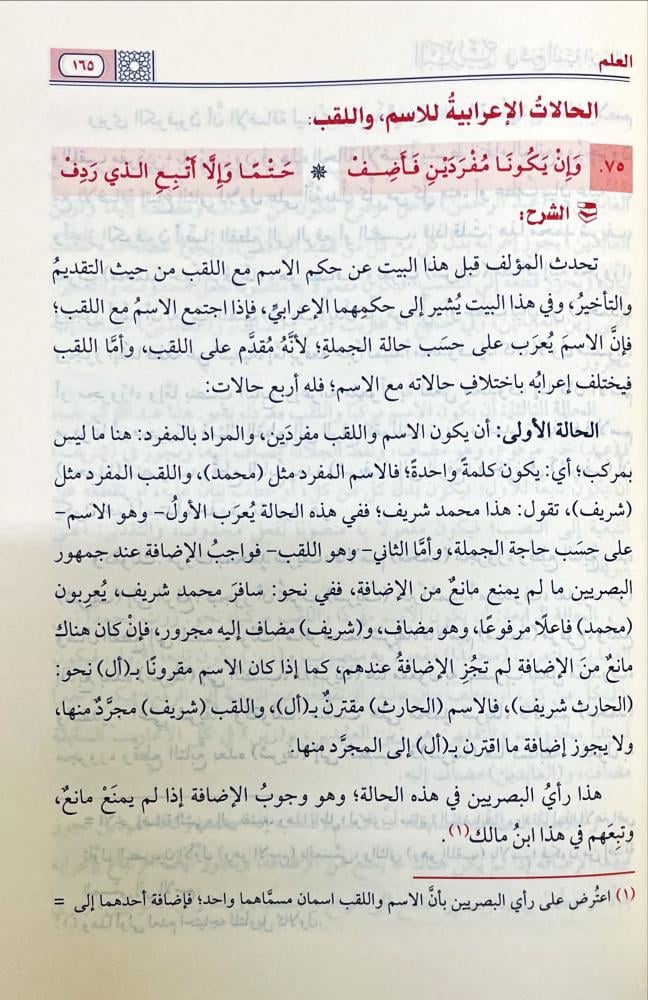 العلم
١٦٥
الحالاتُ الإعرابيةُ للاسمِ، واللقب:
٧٥. وَإِنْ يَكُونَا مُفْرَدَيْنِ فَأَضِفْ ❋ حَتْمًا وَإِلَّا أَتْبِعِ الذي رَدِفْ
الشرح:
تحدث المؤلف قبل هذا البيت عن حكم الاسم مع اللقب من حيث التقديمُ
والتأخيرُ، وفي هذا البيت يُشير إلى حكمهما الإعرابيِّ، فإذا اجتمع الاسمُ مع اللقب؛
فإنَّ الاسمَ يُعرَب على حسَب حالة الجملةِ؛ لأنَّهُ مُقدَّم على اللقب، وأمَّا اللقب
فيختلف إعرابُه باختلافِ حالاته مع الاسم؛ فله أربع حالات:
الحالة الأولى: أن يكون الاسم واللقب مفردَين، والمراد بالمفرد: هنا ما ليس
بمركب؛ أي: يكون كلمةً واحدةً؛ فالاسم المفرد مثل (محمد)، واللقب المفرد مثل
(شريف)، تقول: هذا محمد شريف؛ ففي هذه الحالة يُعرَب الأولُ– وهو الاسم–
على حسَب حاجة الجملة، وأمَّا الثاني– وهو اللقب– فواجبُ الإضافة عند جمهور
البصريين ما لم يمنع مانعٌ من الإضافة، ففي نحو: سافرَ محمد شريف، يُعرِبون
(محمد) فاعلًا مرفوعًا، وهو مضاف، و(شريف) مضاف إليه مجرور، فإنْ كان هناك
مانعٌ منَ الإضافة لم تجُزِ الإضافةُ عندهم، كما إذا كان الاسم مقرونًا بـ(أل) نحو:
(الحارث شريف)، فالاسم (الحارث) مقترنٌ بـ(أل)، واللقب (شريف) مجرَّدٌ منها،
ولا يجوز إضافة ما اقترن بـ(أل) إلى المجرَّد منها.
هذا رأيُ البصريين في هذه الحالة؛ وهو وجوبُ الإضافة إذا لم يمنَعْ مانعٌ،
وتبِعَهم في هذا ابنُ مالك(١).
(١) اعتُرض على رأي البصريين بأنَّ الاسم واللقب اسمان مسمَّاهما واحد؛ فإضافة أحدهما إلى =